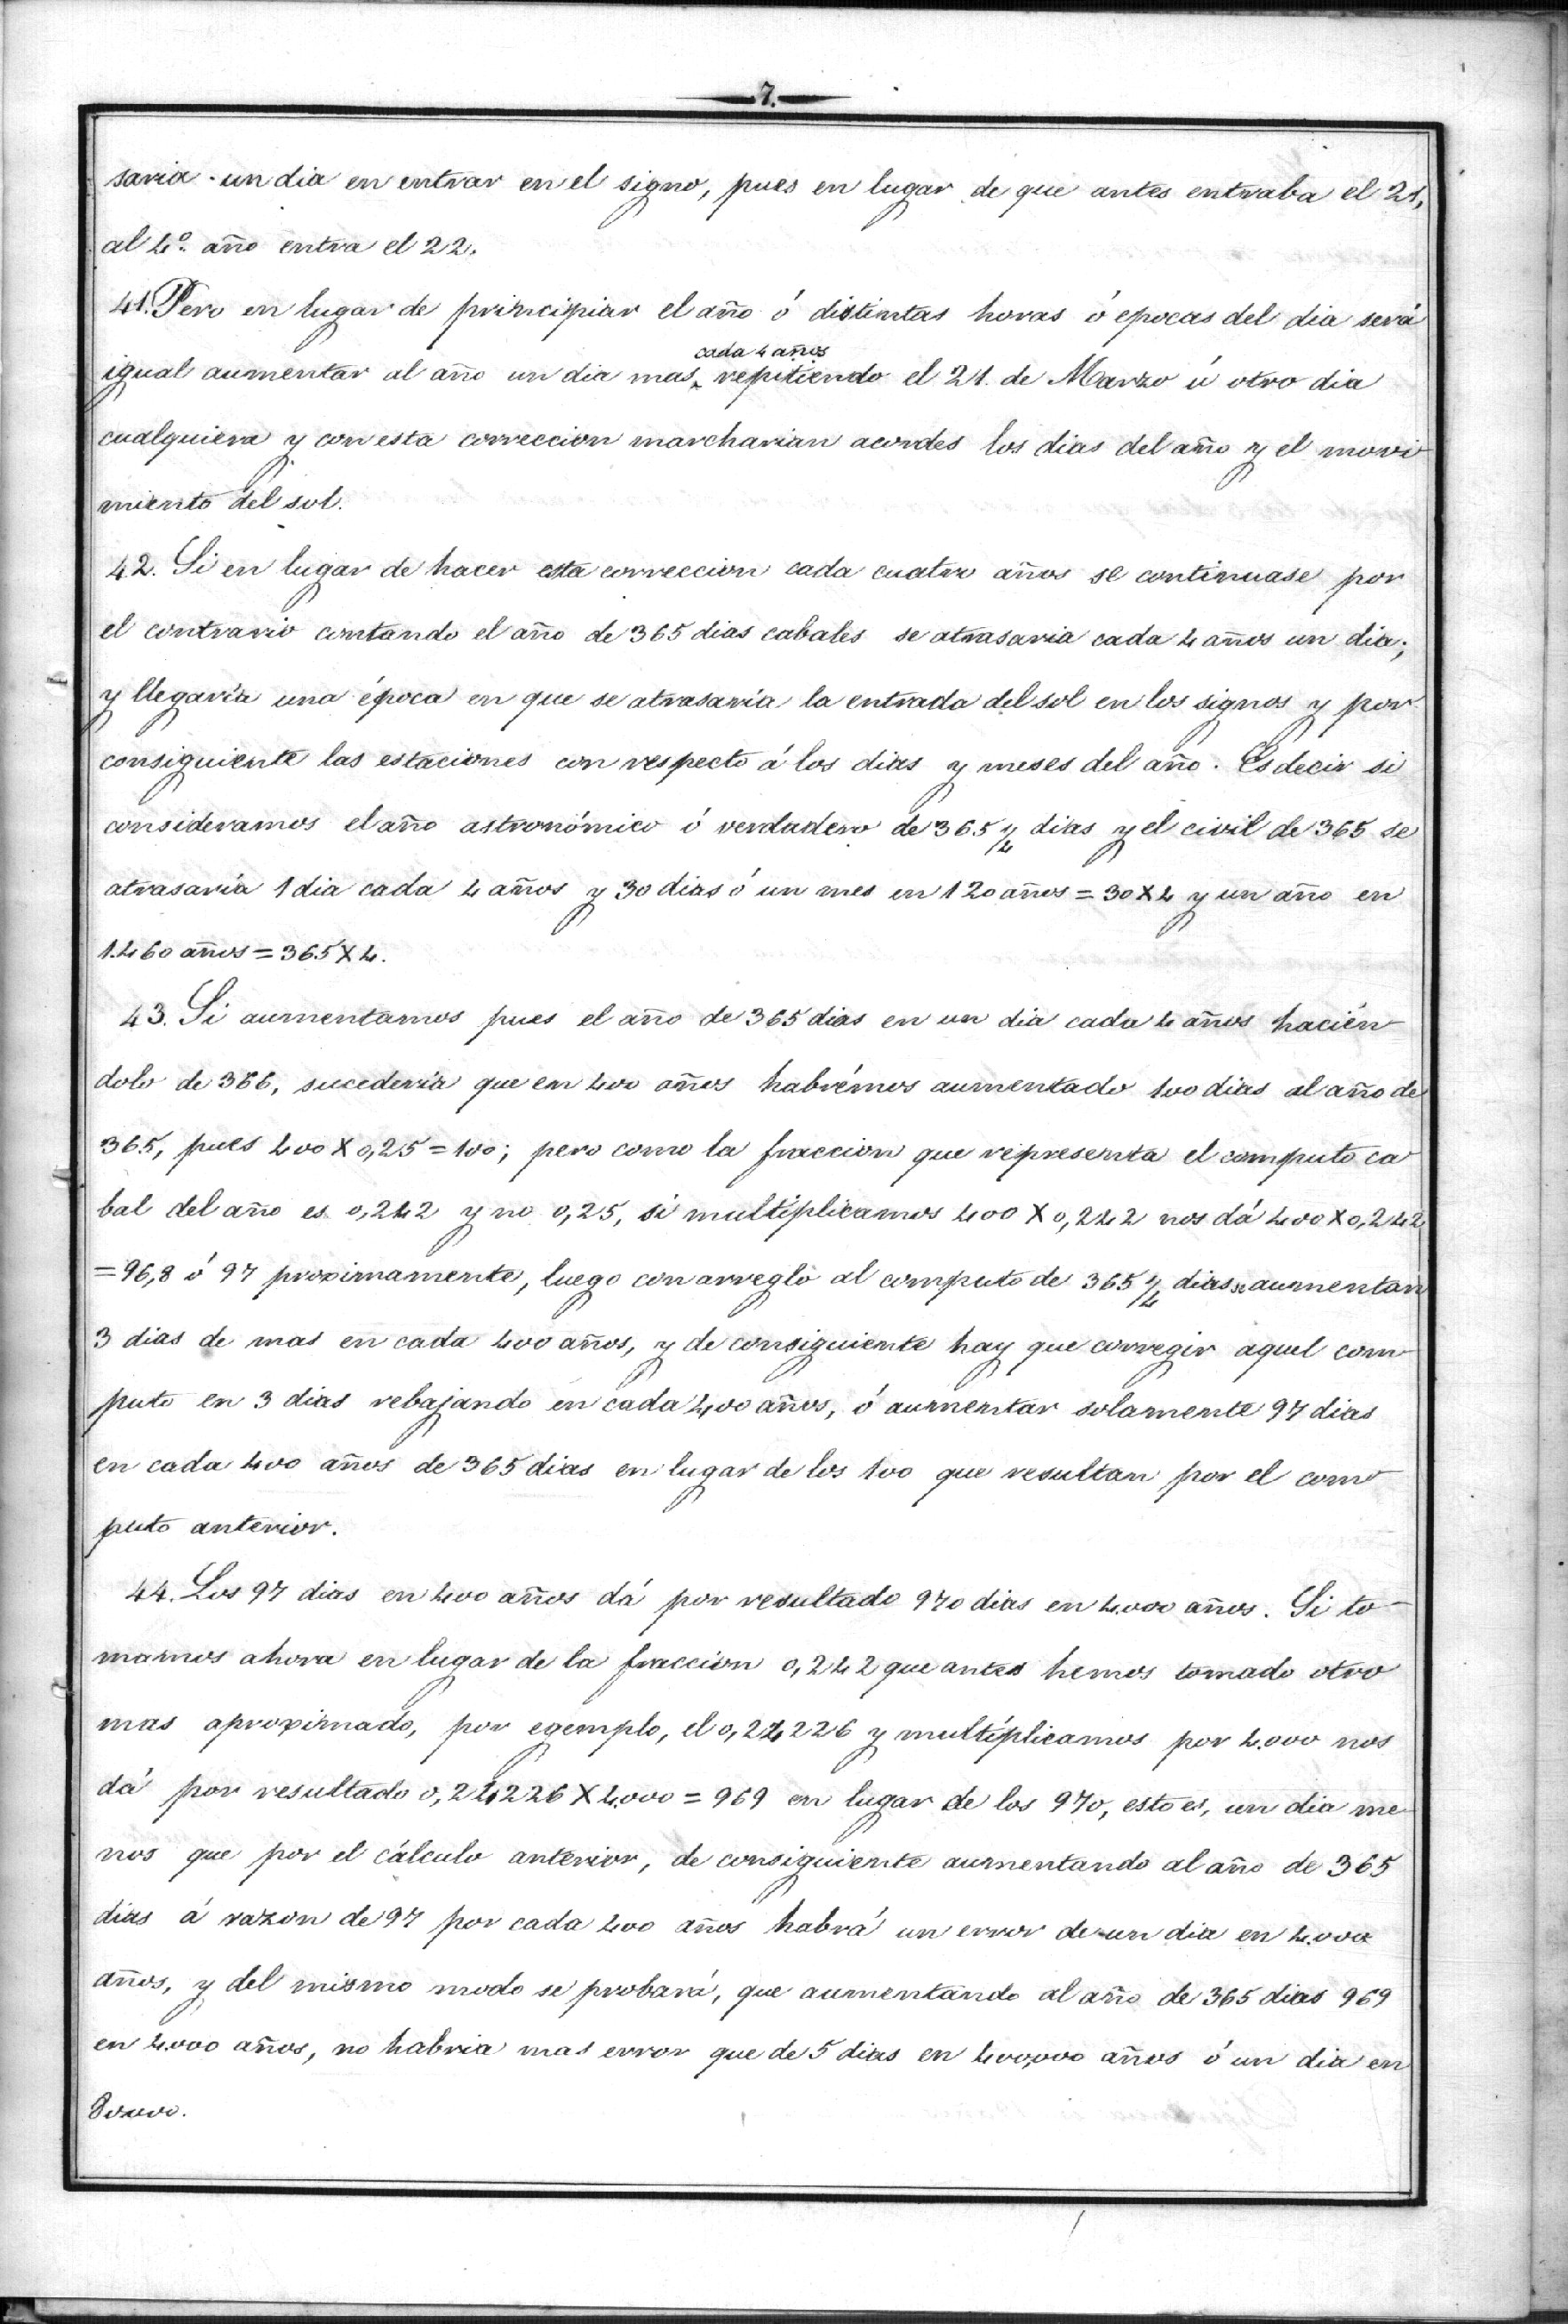 7.
saria un dia en entrar en el signo, pues en lugar de que antes entraba el 21,
al 4º año entra el 22.
41. Pero en lugar de principiar el año ó distintas horas ó epocas del dia será
cada 4 años
igual aumentar al año un dia mas repitiendo el 21 de Marzo ú otro dia
cualquiera y con esta correccion marcharian acordes los dias del año y el movi
miento del sol.
42. Si en lugar de hacer esta correccion cada cuatro años se continuase por
el contrario contando el año de 365 dias cabales se atrasaria cada 4 años un dia;
y llegaría una época en que se atrasaría la entrada del sol en los signos y por
consiguiente las estaciones con respecto á los dias y meses del año. Es decir si
consideramos el año astronómico ó verdadero de 365 1/4 dias y el civil de 365 se
atrasaría 1 dia cada 4 años y 30 dias ó un mes en 120 años = 30 X 4 y un año en
1.460 años = 365 X 4.
43. Si aumentamos pues el año de 365 dias en un dia cada 4 años hacién-
dolo de 366, sucedería que en 400 años habrémos aumentado 100 dias al año de
365, pues 400 X 0,25 = 100; pero como la fraccion que representa el computo ca
bal del año es 0,242 y no 0,25, si multiplicamos 400 X 0,242 nos dá 400 X 0,242
= 96,8 ó 97 proximamente, luego con arreglo al computo de 365 1/4 dias se aumentan
3 dias de mas en cada 400 años, y de consiguiente hay que corregir aquel com-
puto en 3 dias rebajando en cada 400 años, ó aumentar solamente 97 dias
en cada 400 años de 365 dias en lugar de los 100 que resultan por el com-
puto anterior.
44. Los 97 dias en 400 años dá por resultado 970 dias en 4.000 años. Si to-
mamos ahora en lugar de la fraccion 0,242 que antes hemos tomado otro
mas aproximado, por egemplo, el 0,24226 y multiplicamos por 4.000 nos
dá por resultado 0,24226 X 4.000 = 969 en lugar de los 970, esto es, un dia me-
nos que por el cálculo anterior, de consiguiente aumentando al año de 365
dias á razon de 97 por cada 400 años habrá un error de un dia en 4.000
años, y del mismo modo se probará, que aumentando al año de 365 dias 969
en 4.000 años, no habria mas error que de 5 dias en 400,000 años ó un dia en
80.000.